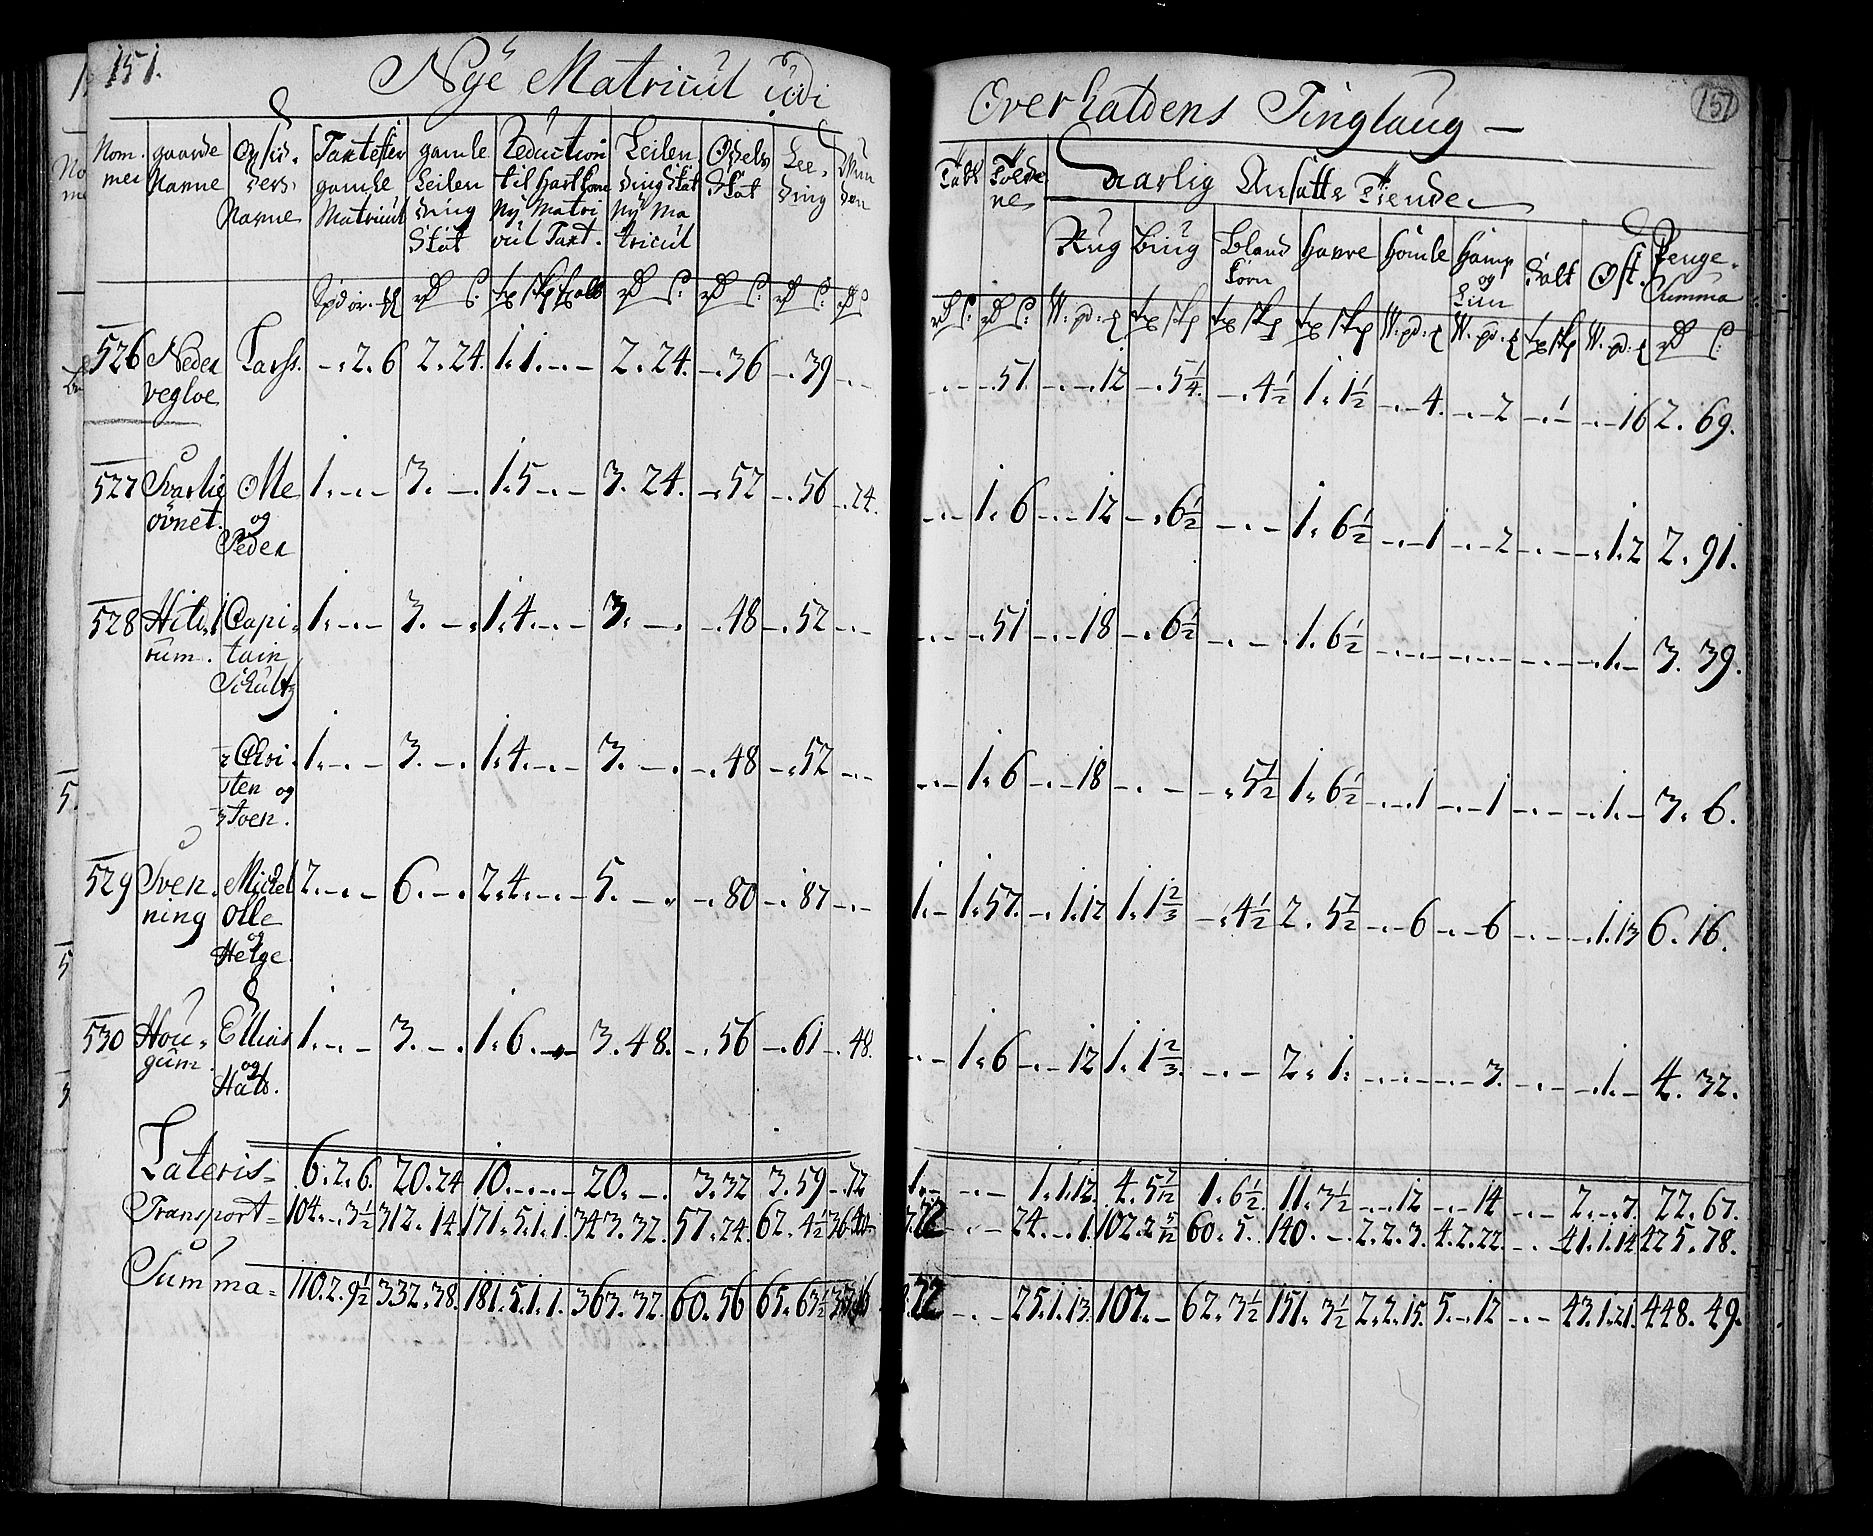 151.
Nÿe Matricul udi
Nom. mer | gaarde Nanne | Opsid. ders Nanne | Taxt efter gamle Matricul | gamle Leilen ding Skat | Reduction til Hartkorn Nÿ Matri cul Taxt. | Leilen ding Skat Nÿ Ma tricul | Odels Skat | Lee. ding
526 Neder vegloe | Larss. | -. 2. 6 | 2. 24. | 1. 1. -. - | 2. 24. | -. 36 | -. 39 | -. -
527 Svarlie øvnet. | Olle og Peder | 1. -. - | 3. -. | 1. 5 -. - | 3. 24. | -. 52 | -. 56 | -. 24.
528 Hilderum. | Capitain Schultz | 1. -. - | 3. -. | 1. 4. -. - | 3. -. | -. 48 | -. 52 | -. -
Christen og Joen. | 1. -. - | 3. -. | 1. 4. -. - | 3. -. | -. 48 | -. 52 | -. -
529 Svenning | Michel Olle og Helge | 2. -. - | 6. -. | 2. 4. -. - | 5. -. | -. 80 | -. 87 | -. -
530 Hougum. | Ellias og Hals. | 1. -. - | 3. -. | 1. 6. -. - | 3. 48. | -. 56 | -. 61 | -. 48.
Lateris = | 6. 2. 6. | 20. 24 | 10. -. -. - | 20. -. | 3. 32 | 3. 59 | -. 72
Transport = | 104. -. 3½ | 312. 14. | 171. 5. 1. 1. | 343. 32. | 57. 24. | 62. 4½
Summa = | 110. 2. 9½ | 332. 38. | 181. 5. 1. 1. | 363. 32. | 60. 56 | 65. 63½
151
Overhaldens Tinglaug -
Aarlig Ansatte Tiende
Rug | Bÿug | Bland Korn | Havre | Homle | Hamp og Liin | Salt | Ost. | Penge. Summa
-. - | -. 51. | -. -. 12 | -. 5¼. | -. 4½ | 1. 1½ | -. -. 4. | -. -. 2 | -. 1 | -. -. 16 | 2. 69.
-. - | 1. 6 | -. -. 12 | -. 6½ | -. - | 1. 6½ | -. -. 1 | -. -. 2 | -. - | -. 1. 2 | 2. 91.
-. - | -. 51 | -. -. 18 | -. 6½ | -. - | 1. 6½ | -. -. - | -. -. - | -. - | -. 1. - | 3. 39.
-. - | 1. 6 | -. -. 18 | -. - | -. 5½ | 1. 6½ | -. -. 1 | -. -. 1 | -. - | -. 1. - | 3. 6.
1. - | 1. 57. | -. 1. 12 | 1. 1⅔ | -. 4½ | 2. 5½ | -. -. 6 | -. -. 6 | -. - | -. 1. 13 | 6. 16.
-. - | 1. 6 | -. -. 12 | 1. 1⅔. | -. - | 2. 1. | -. -. - | -. -. 3. | -. - | -. 1. - | 4. 32.
1. - | -. - | 1. 1. 12. | 4. 5 7/12 | 1. 6½. | 11. 3½ | -. -. 12 | -. -. 14 | -. - | 2. -. 7. | 22. 67.
-. - | 24. -. 1. | 102. 2 5/12 | 60. 5. | 140. -. | 2. 2. 3. | 4. 2. 22. | -. - | 41. 1. 14. | 425. 78.
-. - | 25. 1. 13. | 107. - | 62. 3½ | 151. 3½ | 2. 2. 15. | 5. -. 12 | -. - | 43. 1. 21. | 448. 49.